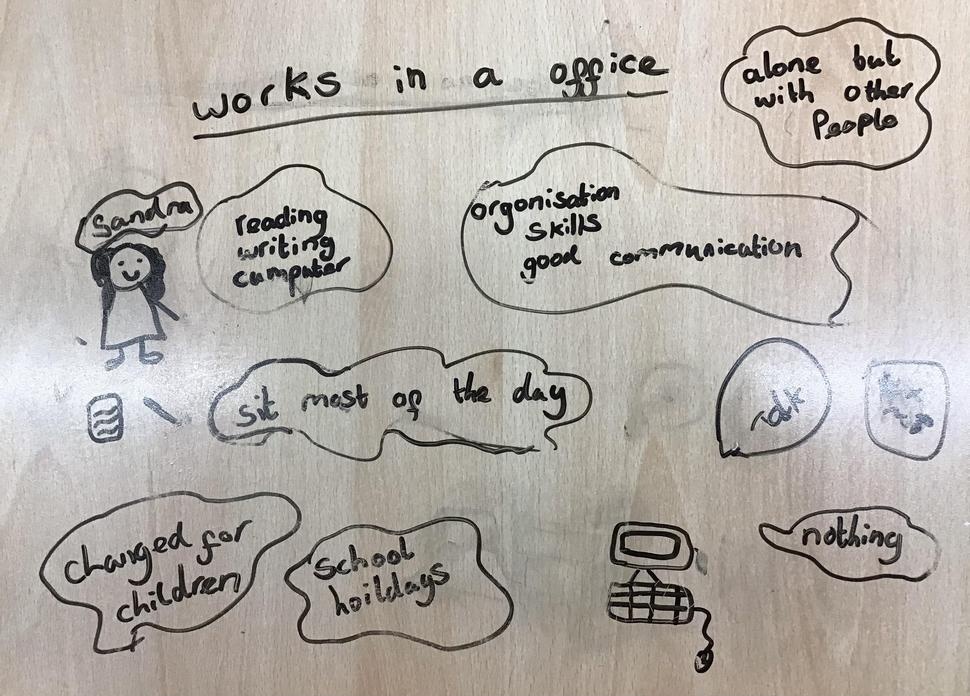 works in a office
alone but
with other
People
Sandra
reading
writing
cumputer
organisation
skills
good communication
sit most of the day
changed for
children
School
hoildays
nothing